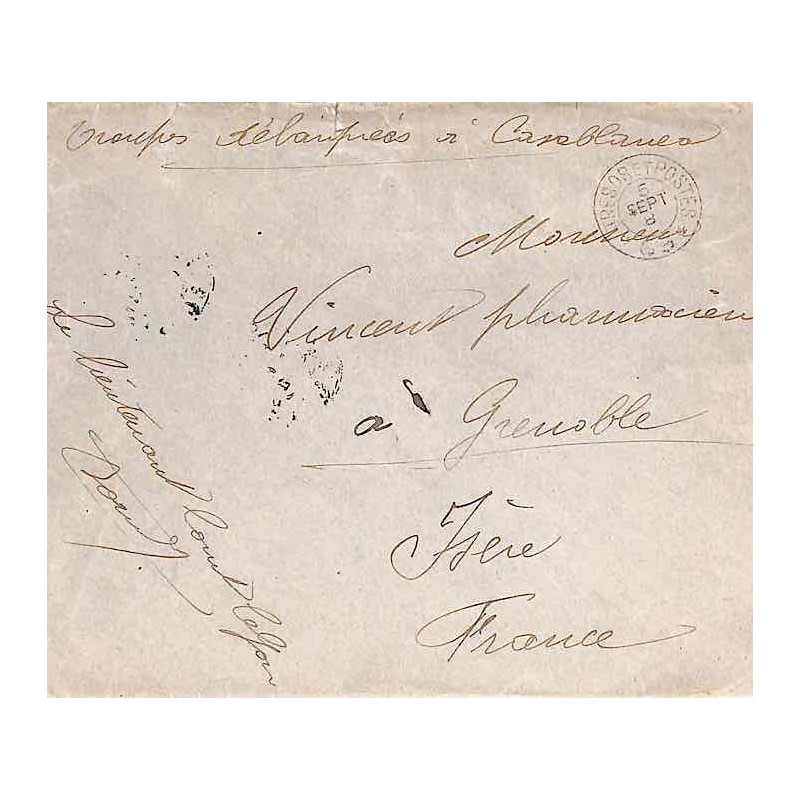 Troupes débarquées à Casablanca
TRESOR ET POSTES
5
SEPT
Monsieur
Vincent pharmacien
à Grenoble
Isère
France
Le lieutenant Comt le